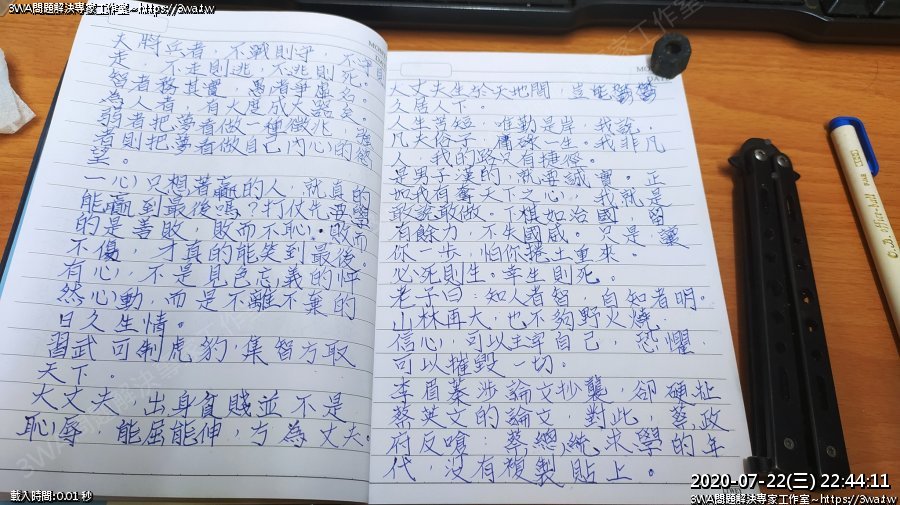 3WA問題解決專家工作室~https://3wa.tw
3WA問題解決專家工作室~https://3wa.tw
夫將兵者，不戰則守，不守則
走，不走則逃，不逃則死。
智者務其實，愚者爭虛名。
為人者，有大度成大器矣。
弱者把夢看做一種徵兆，強
者則把夢看做自己內心的慾
望。
一心只想著贏的人，就真的
能贏到最後嗎？打仗先要學
的是善敗，敗而不恥，敗而
不傷，才真的能笑到最後。
有心，不是見色忘義的怦
然心動，而是不離不棄的
日久生情。
習武可制虎豹，集智方取
天下。
大丈夫，出身貧賤並不是
恥辱，能屈能伸，方為丈夫。
大丈夫生於天地間，豈能鬱鬱
久居人下。
人生苦短，唯勤是岸，我說，
凡夫俗子，庸碌一生。我非凡
人，我的路只有捷徑。
是男子漢的，就要誠實。正
如我有奪天下之心，我就是
敢說敢做。下棋如治國，留
有餘力，不失國威。只是讓
你一步，怕你捲土重來。
必死則生。幸生則死。
老子曰：知人者智，自知者明。
山林再大，也不夠野火燒。
信心，可以主宰自己，恐懼，
可以摧毀一切。
李眉蓁涉論文抄襲，卻硬扯
蔡英文的論文，對此，蔡政
府反嗆：蔡總統求學的年
代，沒有複製貼上。
O.B. office-ball
2020-07-22(三) 22:44:11
載入時間:0.01 秒
3WA問題解決專家工作室~https://3wa.tw